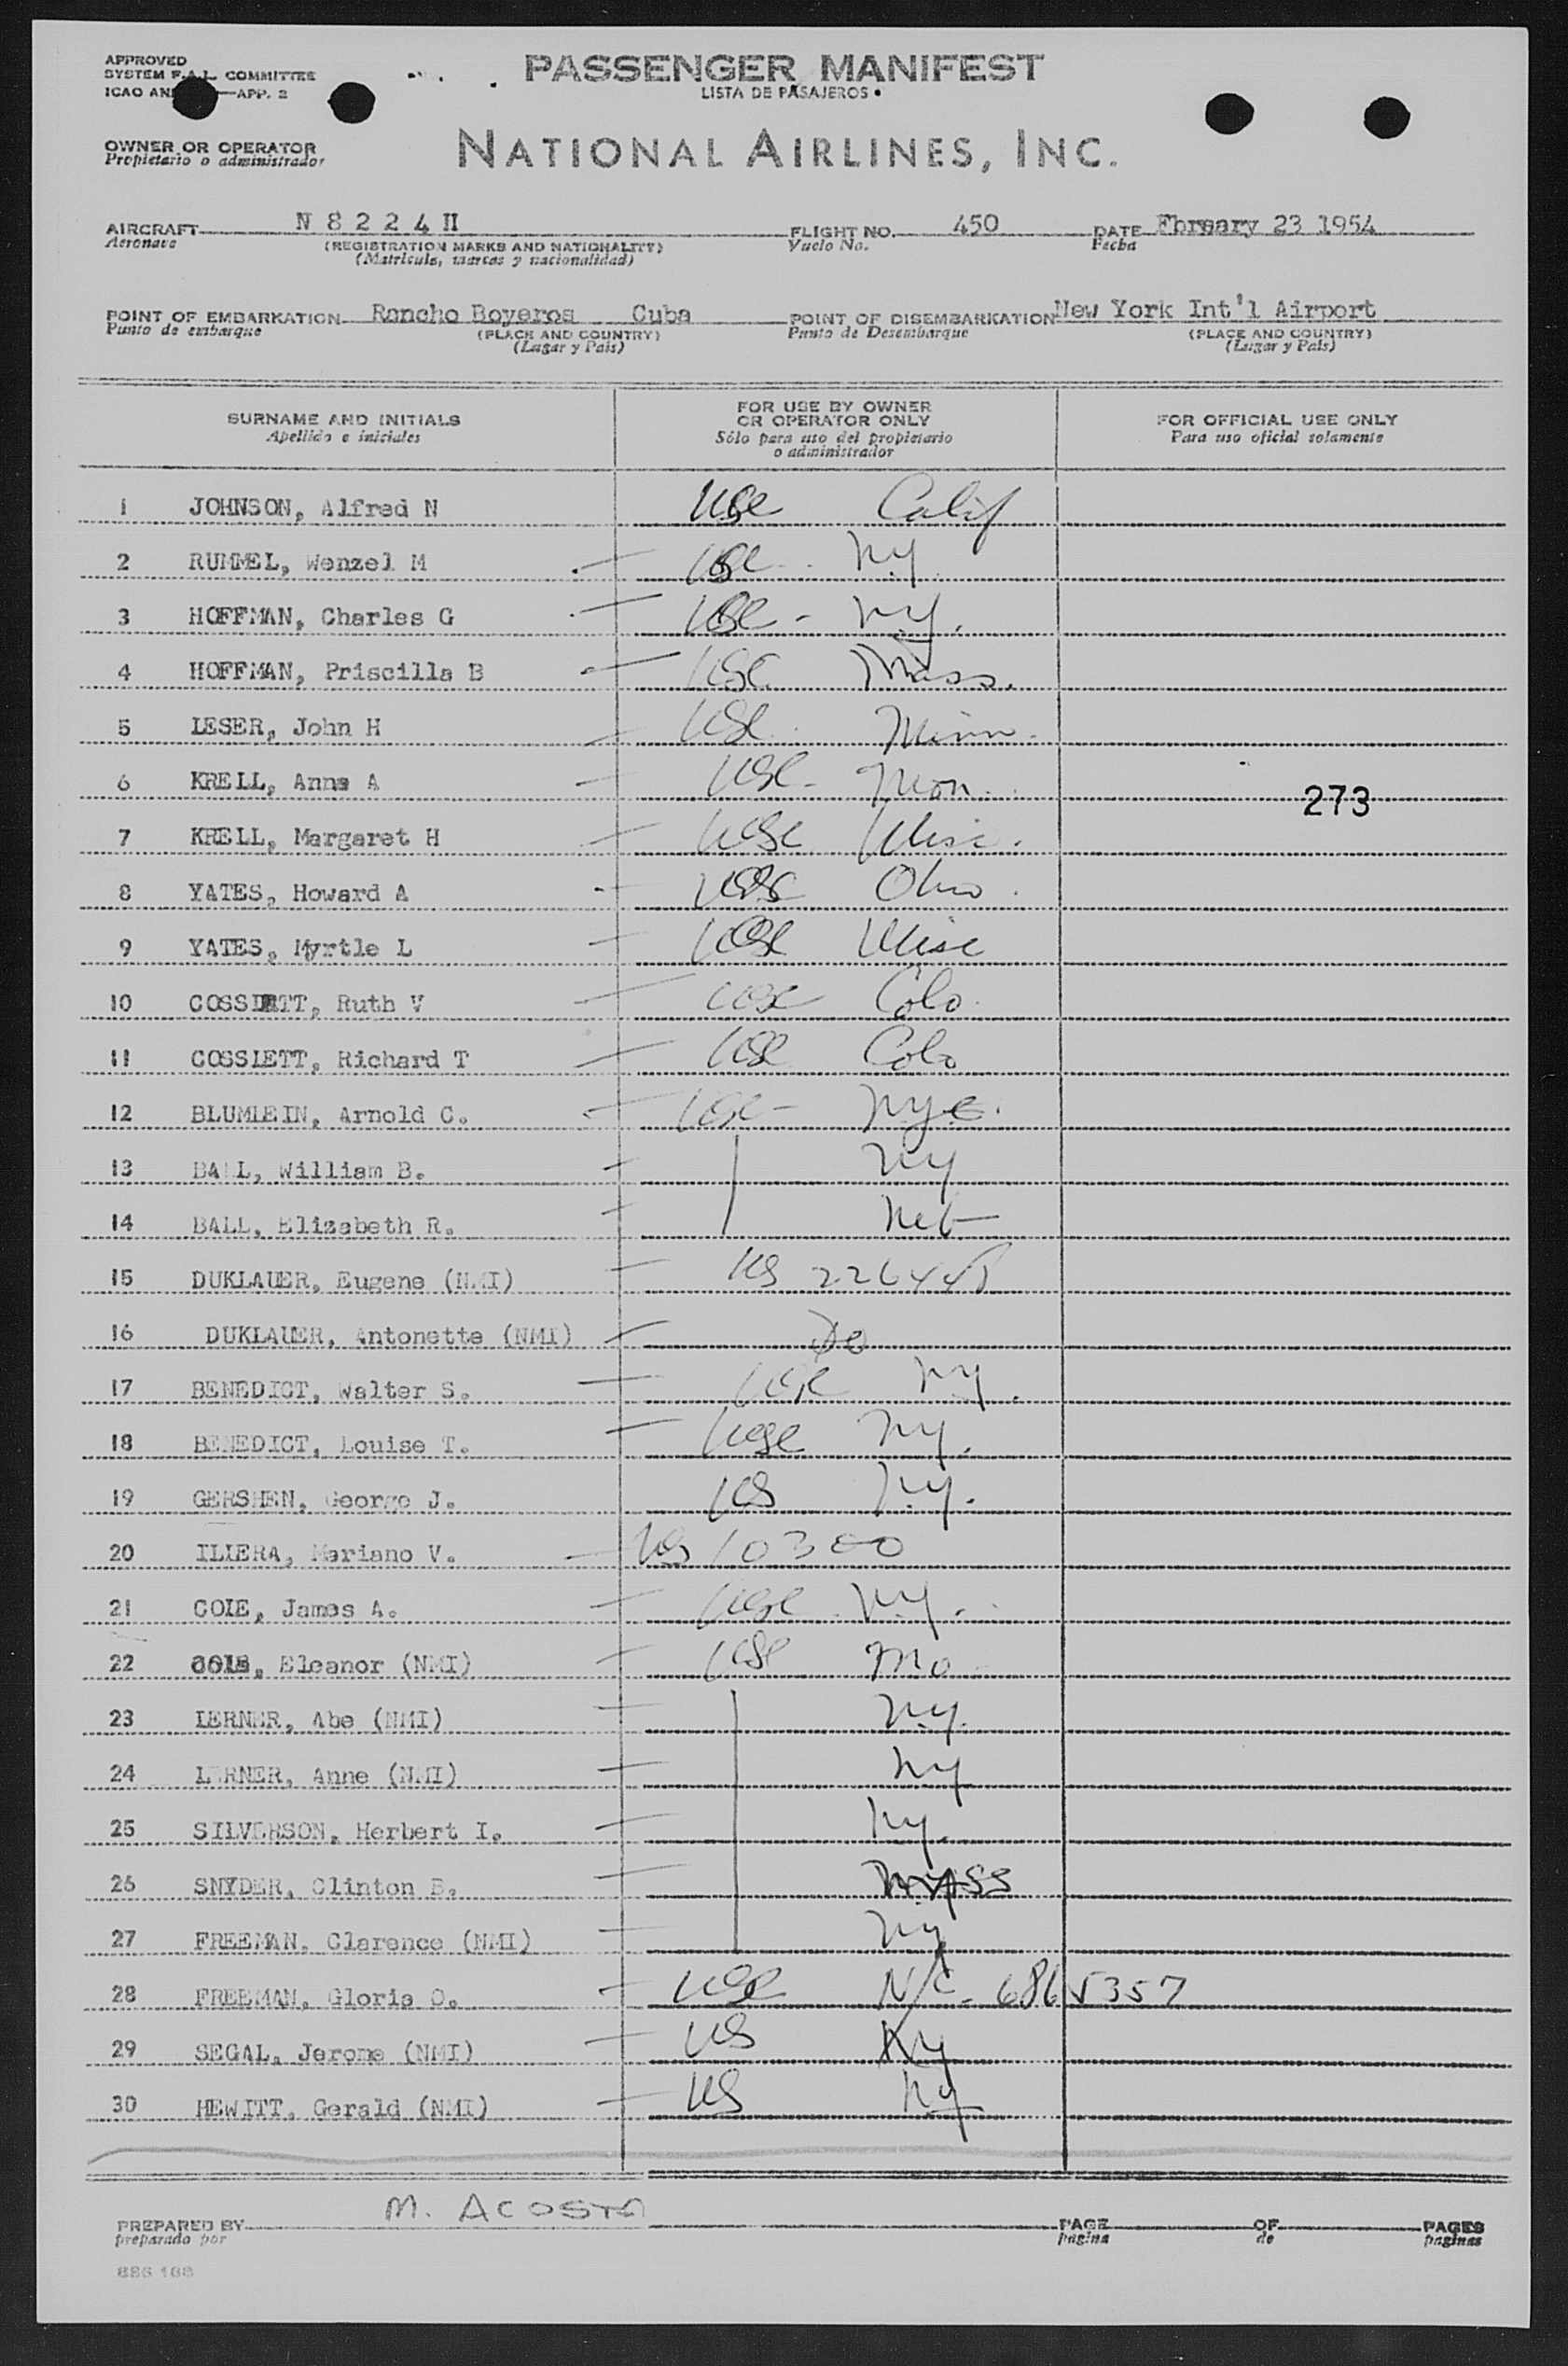 APPROVED
SYSTEM F.A.L. COMMITTEE
ICAO —APP. 2
PASSENGER MANIFEST
LISTA DE PASAJEROS
OWNER OR OPERATOR
Propietario o administrador
NATIONAL AIRLINES, INC.
AIRCRAFT N 8 2 2 4 H FLIGHT NO. 450 DATE Fbruary 23 1954
Aeronave (REGISTRATION MARKS AND NATIONALITY) Vuelo No. Fecha
(Matrícula, marcas y nacionalidad)
POINT OF EMBARKATION Rancho Boyeros Cuba POINT OF DISEMBARKATION New York Int'l Airport
Punto de embarque (PLACE AND COUNTRY) Punto de Desembarque (PLACE AND COUNTRY)
(Lugar y País) (Lugar y País)
SURNAME AND INITIALS
Apellido e iniciales
FOR USE BY OWNER
OR OPERATOR ONLY
Sólo para uso del propietario
o administrador
FOR OFFICIAL USE ONLY
Para uso oficial solamente
1 JOHNSON, Alfred N USC Calif
2 RUMMEL, Wenzel M USC NY
3 HOFFMAN, Charles G USC - NY.
4 HOFFMAN, Priscilla B USC Mass.
5 LESER, John H USC Minn.
6 KRELL, Anna A USC - Mon.
273
7 KRELL, Margaret H USC Wisc.
8 YATES, Howard A USC Ohio
9 YATES, Myrtle L USC Wisc
10 COSSLETT, Ruth V USC Colo.
11 COSSLETT, Richard T USC Colo
12 BLUMLEIN, Arnold C. USC - NYC.
13 BALL, William B. NY
14 BALL, Elizabeth R. Neb
15 DUKLAUER, Eugene (NMI) US
16 DUKLAUER, Antonette (NMI) Do
17 BENEDICT, Walter S. USC NY.
18 BENEDICT, Louise T. USC NY.
19 GERSHEN, George J. US N.Y.
20 ILLERA, Mariano V. US 10300
21 COLE, James A. USC NY.
22 COLE, Eleanor (NMI) USC Mo
23 LERNER, Abe (NMI) N.Y.
24 LERNER, Anne (NMI) NY
25 SILVERSON, Herbert I. NY.
26 SNYDER, Clinton B. MASS
27 FREEMAN, Clarence (NMI) NY
28 FREEMAN, Gloria O. USC N/C- 6865357
29 SEGAL, Jerome (NMI) US NY
30 HEWITT, Gerald (NMI) US NY
PREPARED BY M. ACOSTA PAGE OF PAGES
preparado por pagina de paginas